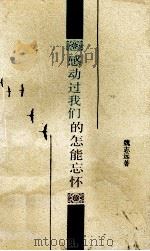 感动过我们的怎能忘怀
魏志远著